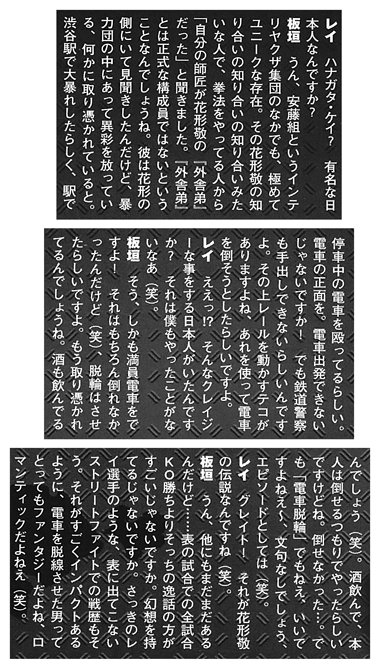 レイ　ハナガタ・ケイ?　有名な日
本人なんですか?
板垣　うん、安藤組というインテ
リヤクザ集団のなかでも、極めて
ユニークな存在。その花形敬の知
り合いの知り合いの知り合いみた
いな人で、拳法をやってる人から
「自分の師匠が花形敬の『外舎弟』
だった」と聞きました。『外舎弟』
とは正式な構成員ではないという
ことなんでしょうね。彼は花形の
側にいて見聞きしたんだけど、暴
力団の中にあって異彩を放ってい
る、何かに取り憑かれていると。
渋谷駅で大暴れしたらしく、駅で
停車中の電車を殴ってるらしい。
電車の正面を。電車出発できない
じゃないですか！　でも鉄道警察
も手出しできないらしいんです
よ。その上レールを動かすテコが
ありますよね、あれを使って電車
を倒そうとしたらしいですよ。
レイ　ええっ!?　そんなクレイジ
ーな事をする日本人がいたんです
か?　それは僕もやったことがな
いなあ（笑）。
板垣　そう、しかも満員電車をで
すよ！　それはもちろん倒れなか
ったんだけど（笑）、脱輪はさせ
たらしいですよ。もう取り憑かれ
てるんでしょうね。酒も飲んでる
んでしょう（笑）。酒飲んで、本
人は倒せるつもりでやったらしい
ですけどね。倒せなかった…。で
も「電車脱輪」でもねえ、いいで
すよねえ〜、文句なしでしょう、
エピソードとしては（笑）。
レイ　グレイト！　それが花形敬
の伝説なんですね（笑）。
板垣　うん、他にもまだまだある
んだけど……表の試合での全試合
KO勝ちよりそっちの逸話の方が
すごいじゃないですか。幻想を持
てるじゃないですか。さっきのレ
イ選手のような、表に出てこない
ストリートファイトでの戦歴もそ
う。それがすごくインパクトある
ように、電車を脱線させた男って
とってもファンタジーだよね、ロ
マンティックだよねえ（笑）。